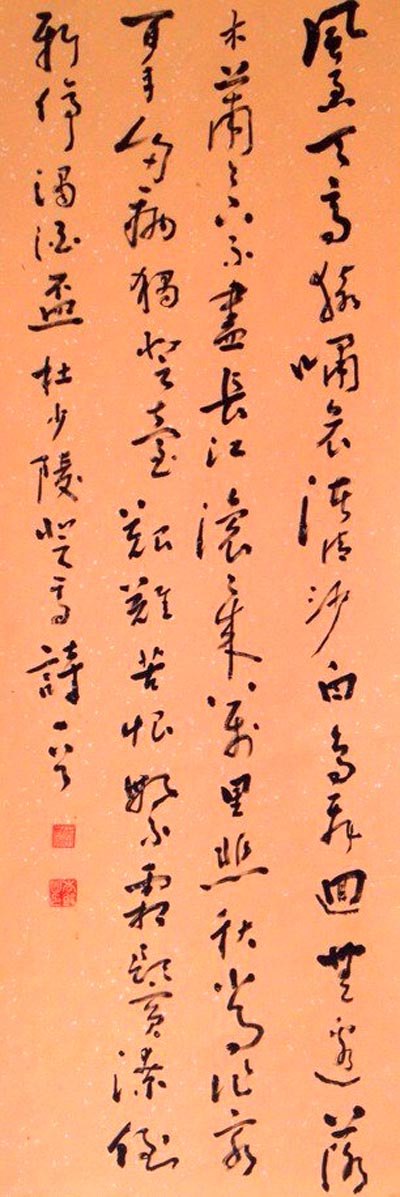 風急天高猿嘯哀渚清沙白鳥飛迴無邊落
木蕭々下不盡長江滾々來萬里悲秋常作客
百年多病獨登臺艱難苦恨繁霜鬢潦倒
新停濁酒盃杜少陵登高詩一首